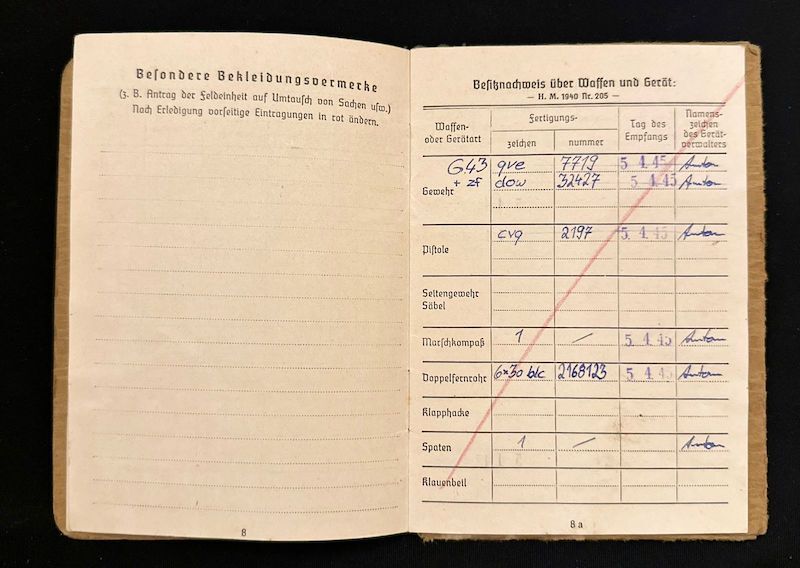 Besondere Bekleidungsvermerke
(z. B. Antrag der Feldeinheit auf Umtausch von Sachen usw.)
Nach Erledigung vorseitige Eintragungen in rot ändern.
8
Besitznachweis über Waffen und Gerät:
— H. M. 1940 Nr. 205 —
Waffen- oder Gerätart
Fertigungs-
zeichen nummer
Tag des Empfangs
Namens-zeichen des Gerät-verwalters
Gewehr G43 qve 7719 5. 4. 45 Anton
+ zf dow 32427 5 4. 45 Anton
Pistole cvq 2197 5. 4. 45 Anton
Seitengewehr
Säbel
Marschkompaß 1 — 5. 4. 45 Anton
Doppelfernrohr 6x30 blc 2168123 5 4. 45 Anton
Klapphacke
Spaten 1 — Anton
Klauenbeil
8a